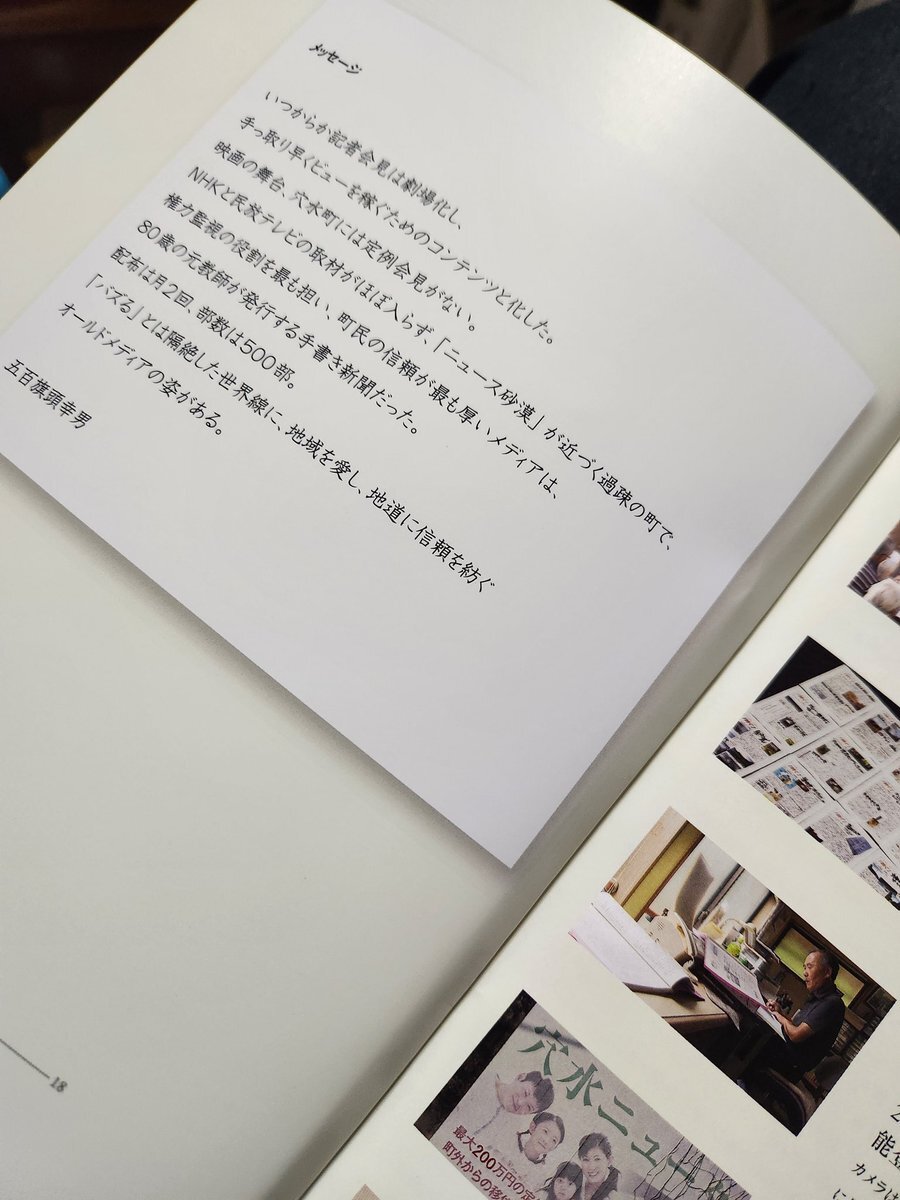 メッセージ
いつからか記者会見は劇場化し、
手っ取り早くビューを稼ぐためのコンテンツと化した。
映画の舞台、穴水町には定例会見がない。
NHKと民放テレビの取材がほぼ入らず、「ニュース砂漠」が近づく過疎の町で、
権力監視の役割を最も担い、町民の信頼が最も厚いメディアは、
80歳の元教師が発行する手書き新聞だった。
配布は月2回、部数は500部。
「バズる」とは隔絶した世界線に、地域を愛し、地道に信頼を紡ぐ
オールドメディアの姿がある。
五百旗頭幸男
18
穴水ニュー
最大200万円の定
町外からの移
2
能登
カメラは
に